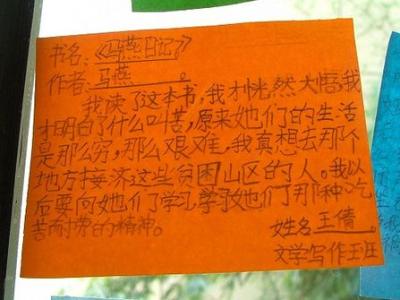 书名:《马燕日记》
作者:马燕。
我读了这本书,我才恍然大悟,我
才明白了什么叫苦,原来她们的生活
是那么穷,那么艰难,我真想去那个
地方接济这些贫困山区的人。我以
后要向她们学习,学习她们那种吃
苦耐劳的精神。
姓名王倩
文学写作王班